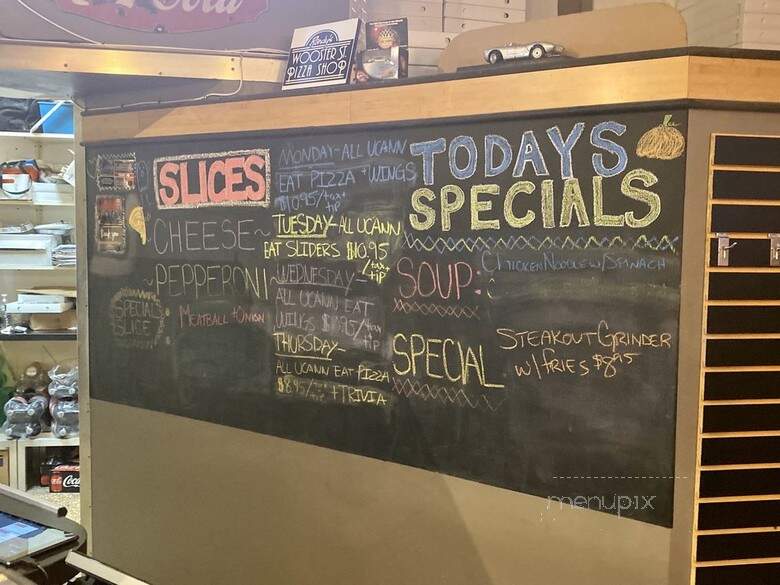 Cola
Rudy's
WOOSTER ST.
PIZZA SHOP
SLICES
CHEESE~
~PEPPERONI~
SPECIAL
SLICE
MEATBALL + ONION
MONDAY-ALL UCANN
EAT PIZZA + WINGS
$10.95/tax+
tip
TUESDAY-ALL UCANN
EAT SLIDERS $10.95
/tax+
tip
WEDNESDAY-
ALL UCANN EAT
WINGS
/tax+
tip
THURSDAY-
ALL UCANN EAT PIZZA
$8.95/
+ TRIVIA
TODAYS
SPECIALS
SOUP:
CHICKEN NOODLE W/SPINACH
SPECIAL
STEAKOUT GRINDER
W/ FRIES $8.95
menupix
Coca